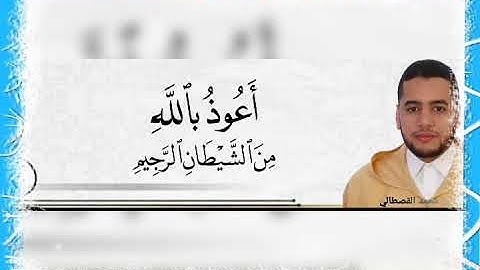 أَعُوذُ بِٱللَّهِ
مِنَ ٱلشَّيْطَانِ ٱلرَّجِيمِ
القصطالي